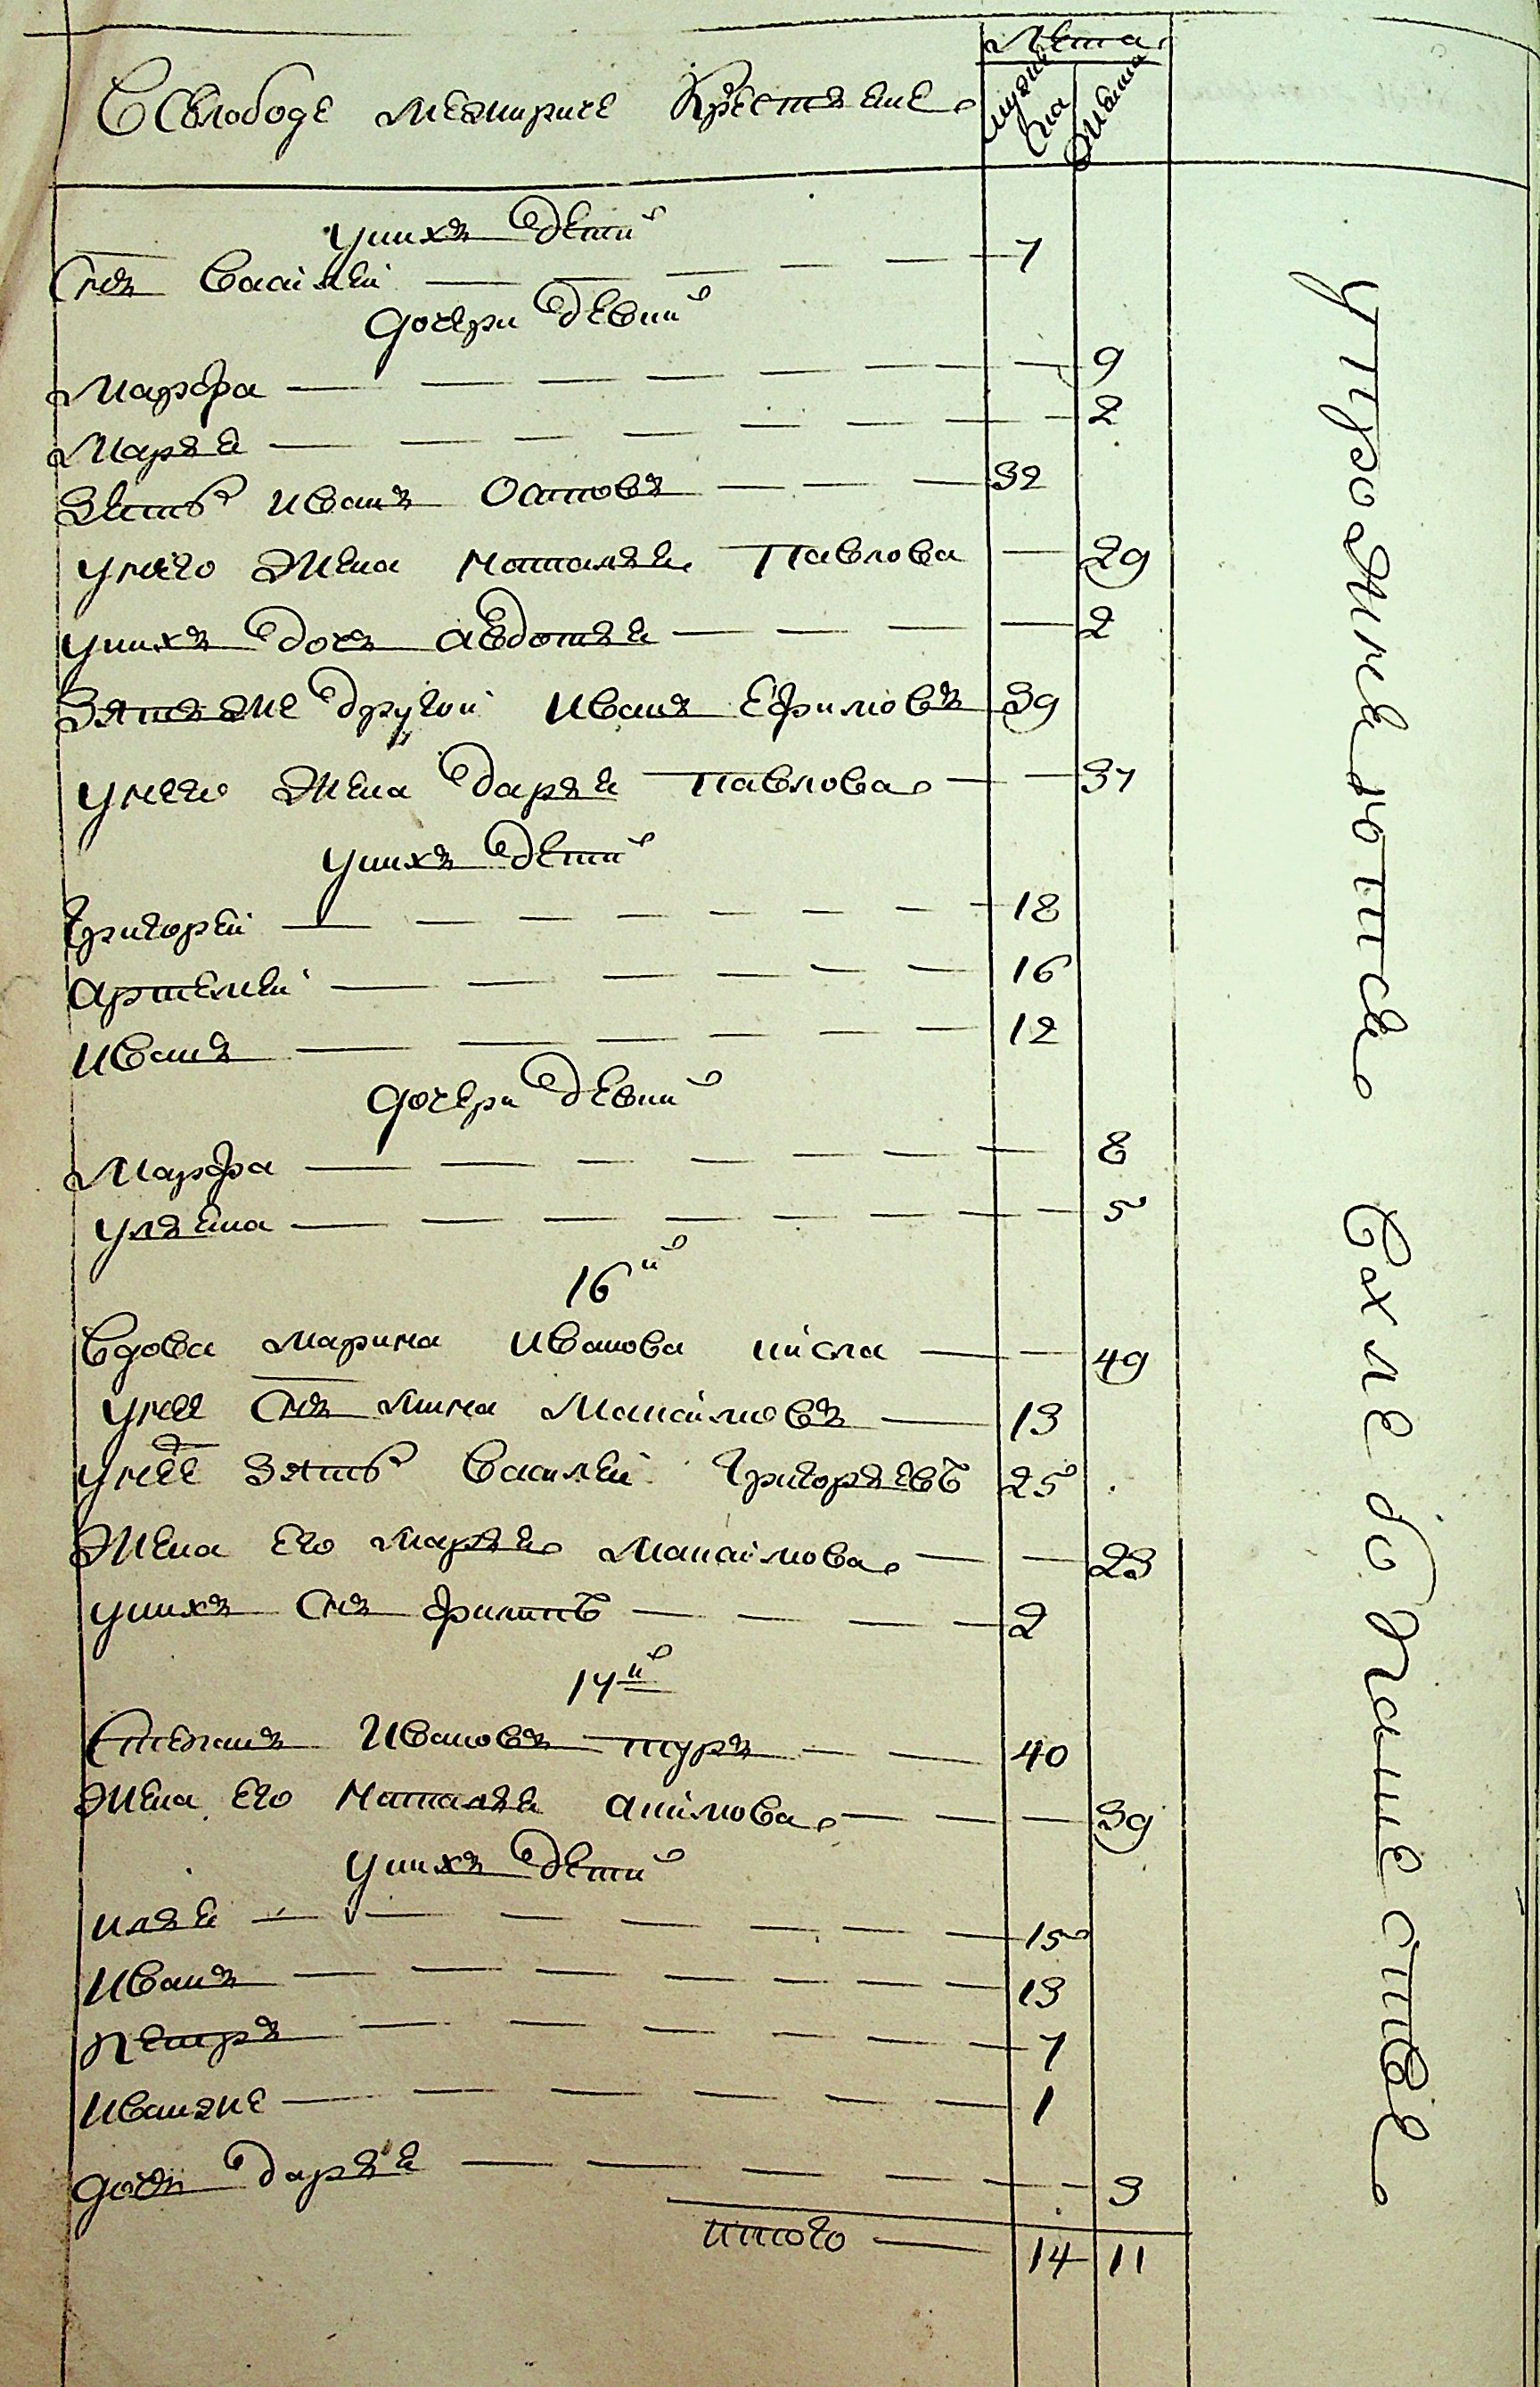 Лета
В Слободе Межириче Крестьяне
мужес
ка
женска
у них детй
Снъ Василей 7
дочери девки
Марфа 9
Марья 2
Зять Иванъ Осиповъ 32
у него жена Наталья Павлова 29
у них дочь Авдотья 2
Зять же другой Иванъ Ефимовъ 39
у него жена Дарья Павлова 37
у них дети
Григорей 18
Артемей 16
Иванъ 12
дочери девки
Марфа 8
Ульяна 5
16й
Вдова Марина Иванова 49
у нее Снъ Мина Манойловъ 13
у неё Зять Василей Григорьевъ 25
Жена Его Марья Манойлова 23
у нихъ Снъ Филипъ 2
17й
Степанъ Ивановъ туръ 40
Жена Его Наталья 39
у нихъ дети
Илья 15
Иванъ 13
Петръ 7
Иванъ же 1
дочь Дарья 3
итого 14 11
упражняютсе в хлебопашестве